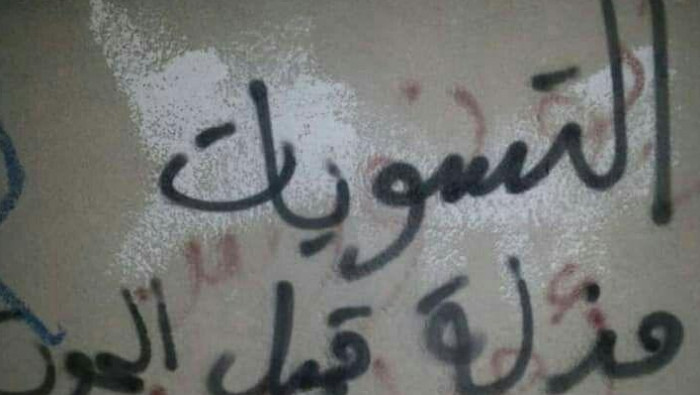 التسويات
مذلة قبل الموت